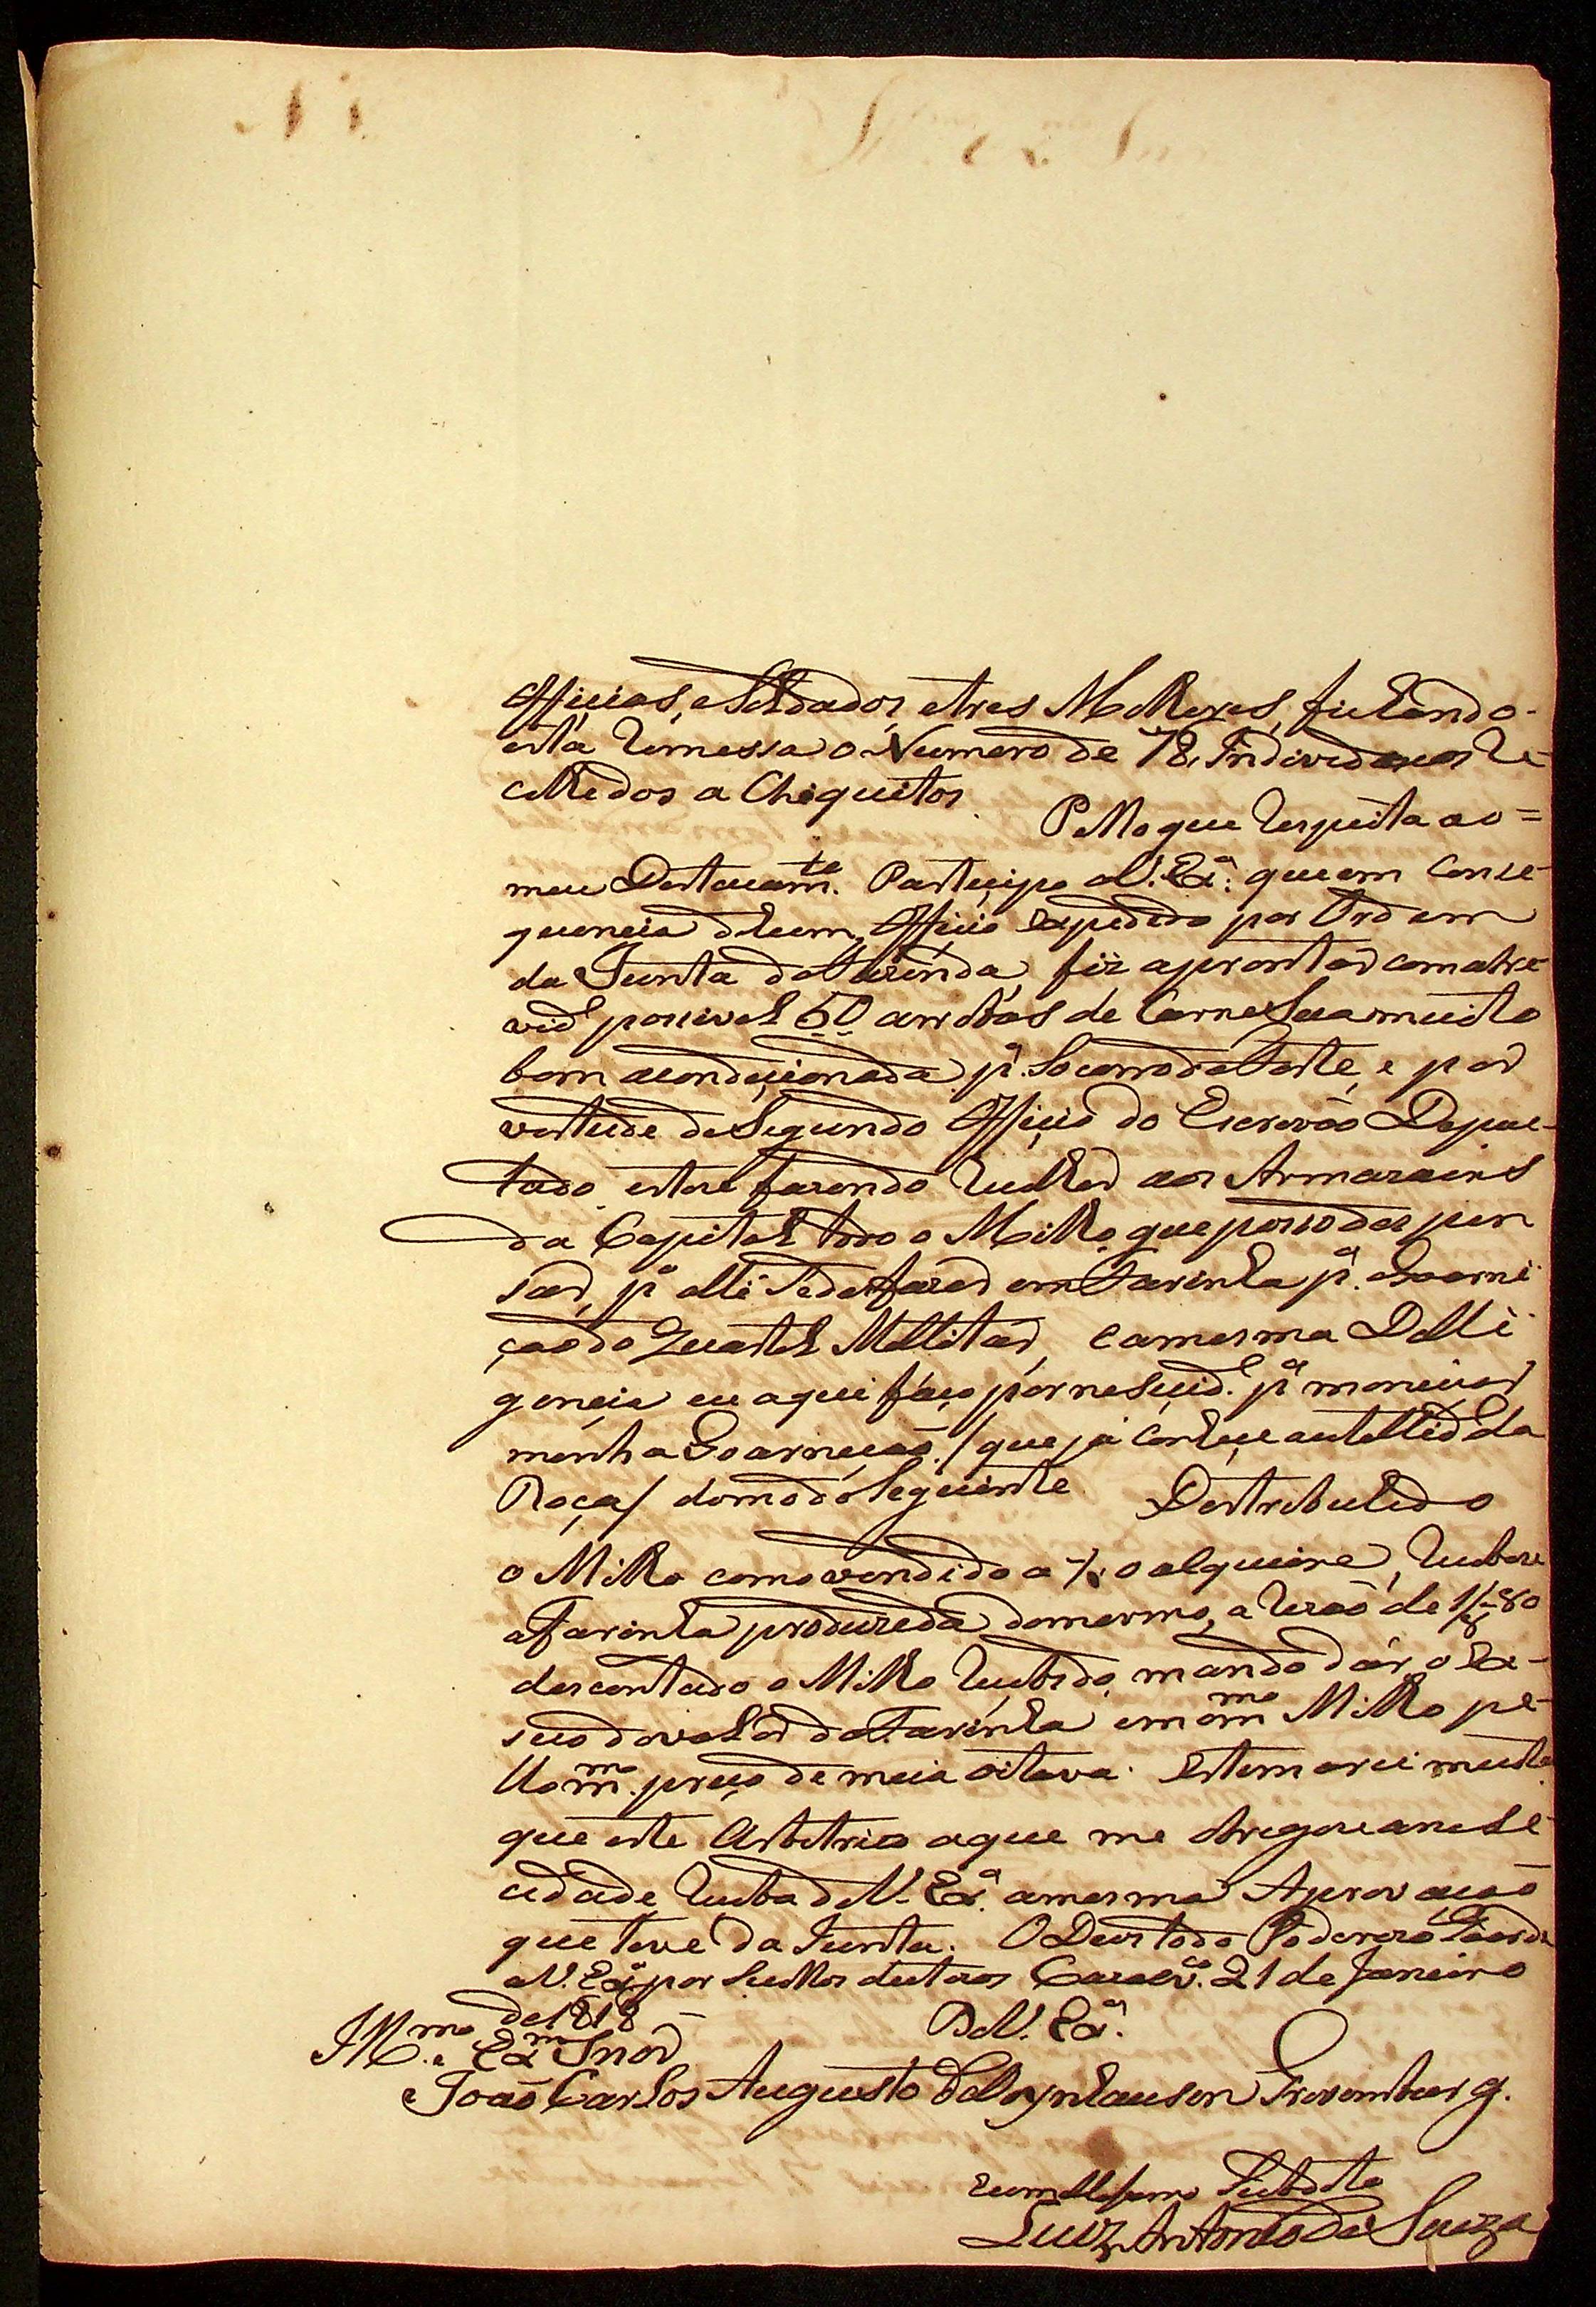 Officiaes, e Soldados, e tres Molheres, ficando
esta Remessa o Numero de 78, Individuos Re-
colhedos a Chequitos.
Pello que respeita ao =
meu Destacam.to Partecipo a V. Ex.ª que em Conse-
quencia d'hum, Officio expedido por Ordem
da Junta da Fazenda, fiz aprontar com a bre-
vid.e posivel 50 arrobas de Carne Seca muito
bem acondecionada p.ª Socorro de Forte, e por
vertude de Segundo Officio do Escrivão Depu-
tado estou fazendo recolher aos Armazaens
da Capital todo o Milho que posso despen
sar, p.ª alli se desfazer em Farinha p.ª a Goarni
ção do Quartel Melitar, e a mesma Delli
gencia eu aqui faço por neseçid.e p.ª moniciar
minha Goarnição / que já
Roça / do modo Seguinte Destribuhido
o Milho como vendido a o alqueire, Recebese
a Farinha produzeda do mesmo, a rezão de
descontado o Milho recebido, mando dár o Ex-
seço do valor da Farinha em m.mo Milho pe-
llo m.mo preço de meia oitava. Estemarei muito
que este Arbitrio a que me obregou a nesse-
cidade receba de V. Ex.ª a mesma Aprovação
que teve da Junta. O Deus todo Poderozo Goarde
a V. Ex.ª por Seculos ditozos Cazalv.co 21 de Janeiro
de 1818
De V. Ex.ª
Ill.mo e Ex.mo Snor
João Carlos Augusto de Oeynhauson Grevemburg.
Humillissimo Subdito
Luiz Antonio de Souza